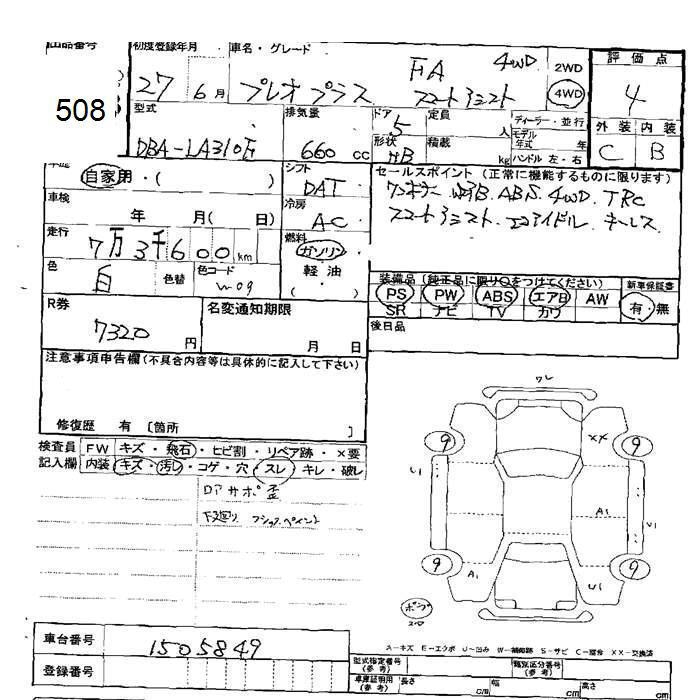 出品番号 初度登録年月 車名・グレード 評価点
508
27 6月 プレオプラス FA 4WD 2WD
スマートアシスト 4WD
4
型式 排気量 ドア 定員 ディーラー・並行 外装 内装
DBA-LA310F 660cc 5 人 モデル年式 年
形状 積載 kg ハンドル 左・右
HB
C B
自家用・( ) シフト セールスポイント(正常に機能するものに限ります)
DAT ABS. 4WD. TRC
車検 冷房 スマートアシスト. エコアイドル. キーレス
年 月( 日) AC
走行 燃料
7万3千600km ガソリン
色 色替 色コード 軽油
白 W-09 ( )
装備品(純正品に限り○をつけてください) 新車保証書
PS PW ABS エアB AW 有・無
SR ナビ TV カワ
R券 名変通知期限 後日品
7320円 月 日
注意事項申告欄(不具合内容等は具体的に記入して下さい)
修復歴 有 [箇所 ]
検査員 FW キズ・飛石・ヒビ割・リペア跡・×要
記入欄 内装 キズ・汚れ・コゲ・穴・スレ・キレ・破レ
ロアサポ歪
下廻り
ワレ
9 XX 9
U1
A1 U1
9 9
A1 U1
車台番号 1505849
A-キズ E-エクボ U-凹み W-補修跡 S-サビ C-腐食 XX-交換済
登録番号
型式指定番号(参考) 類別区分番号(参考)
車庫証明用(参考) 長さ cm 幅 cm 高さ cm